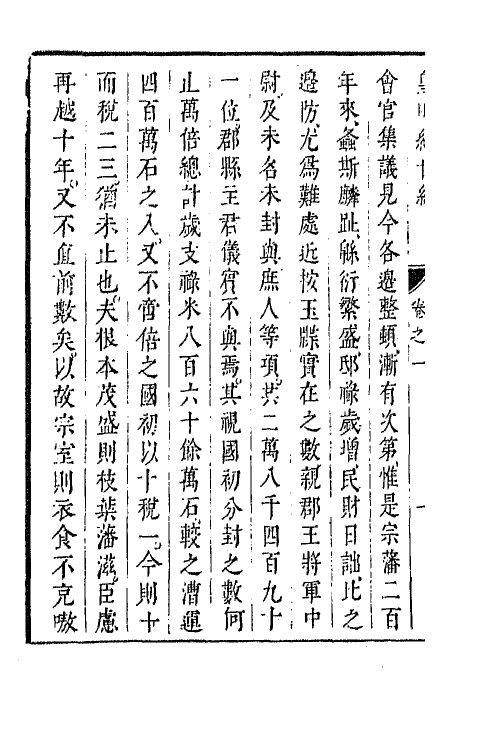 皇明經世編
卷之一
會官集議見今各邊整頓漸有次第惟是宗藩二百
年來螽斯麟趾緜衍繁盛邸祿歲增民財日詘比之
邊防尤爲難處近按玉牒實在之數親郡王將軍中
尉及未名未封與庶人等項共二萬八千四百九十
一位郡縣主君儀賓不與焉其視國初分封之數何
止萬倍總計歲支祿米八百六十餘萬石較之漕運
四百萬石之入又不啻倍之國初以十稅一今則十
而稅二三猶未止也夫根本茂盛則枝葉藩滋臣慮
再越十年又不止前數矣以故宗室則衣食不克嗷